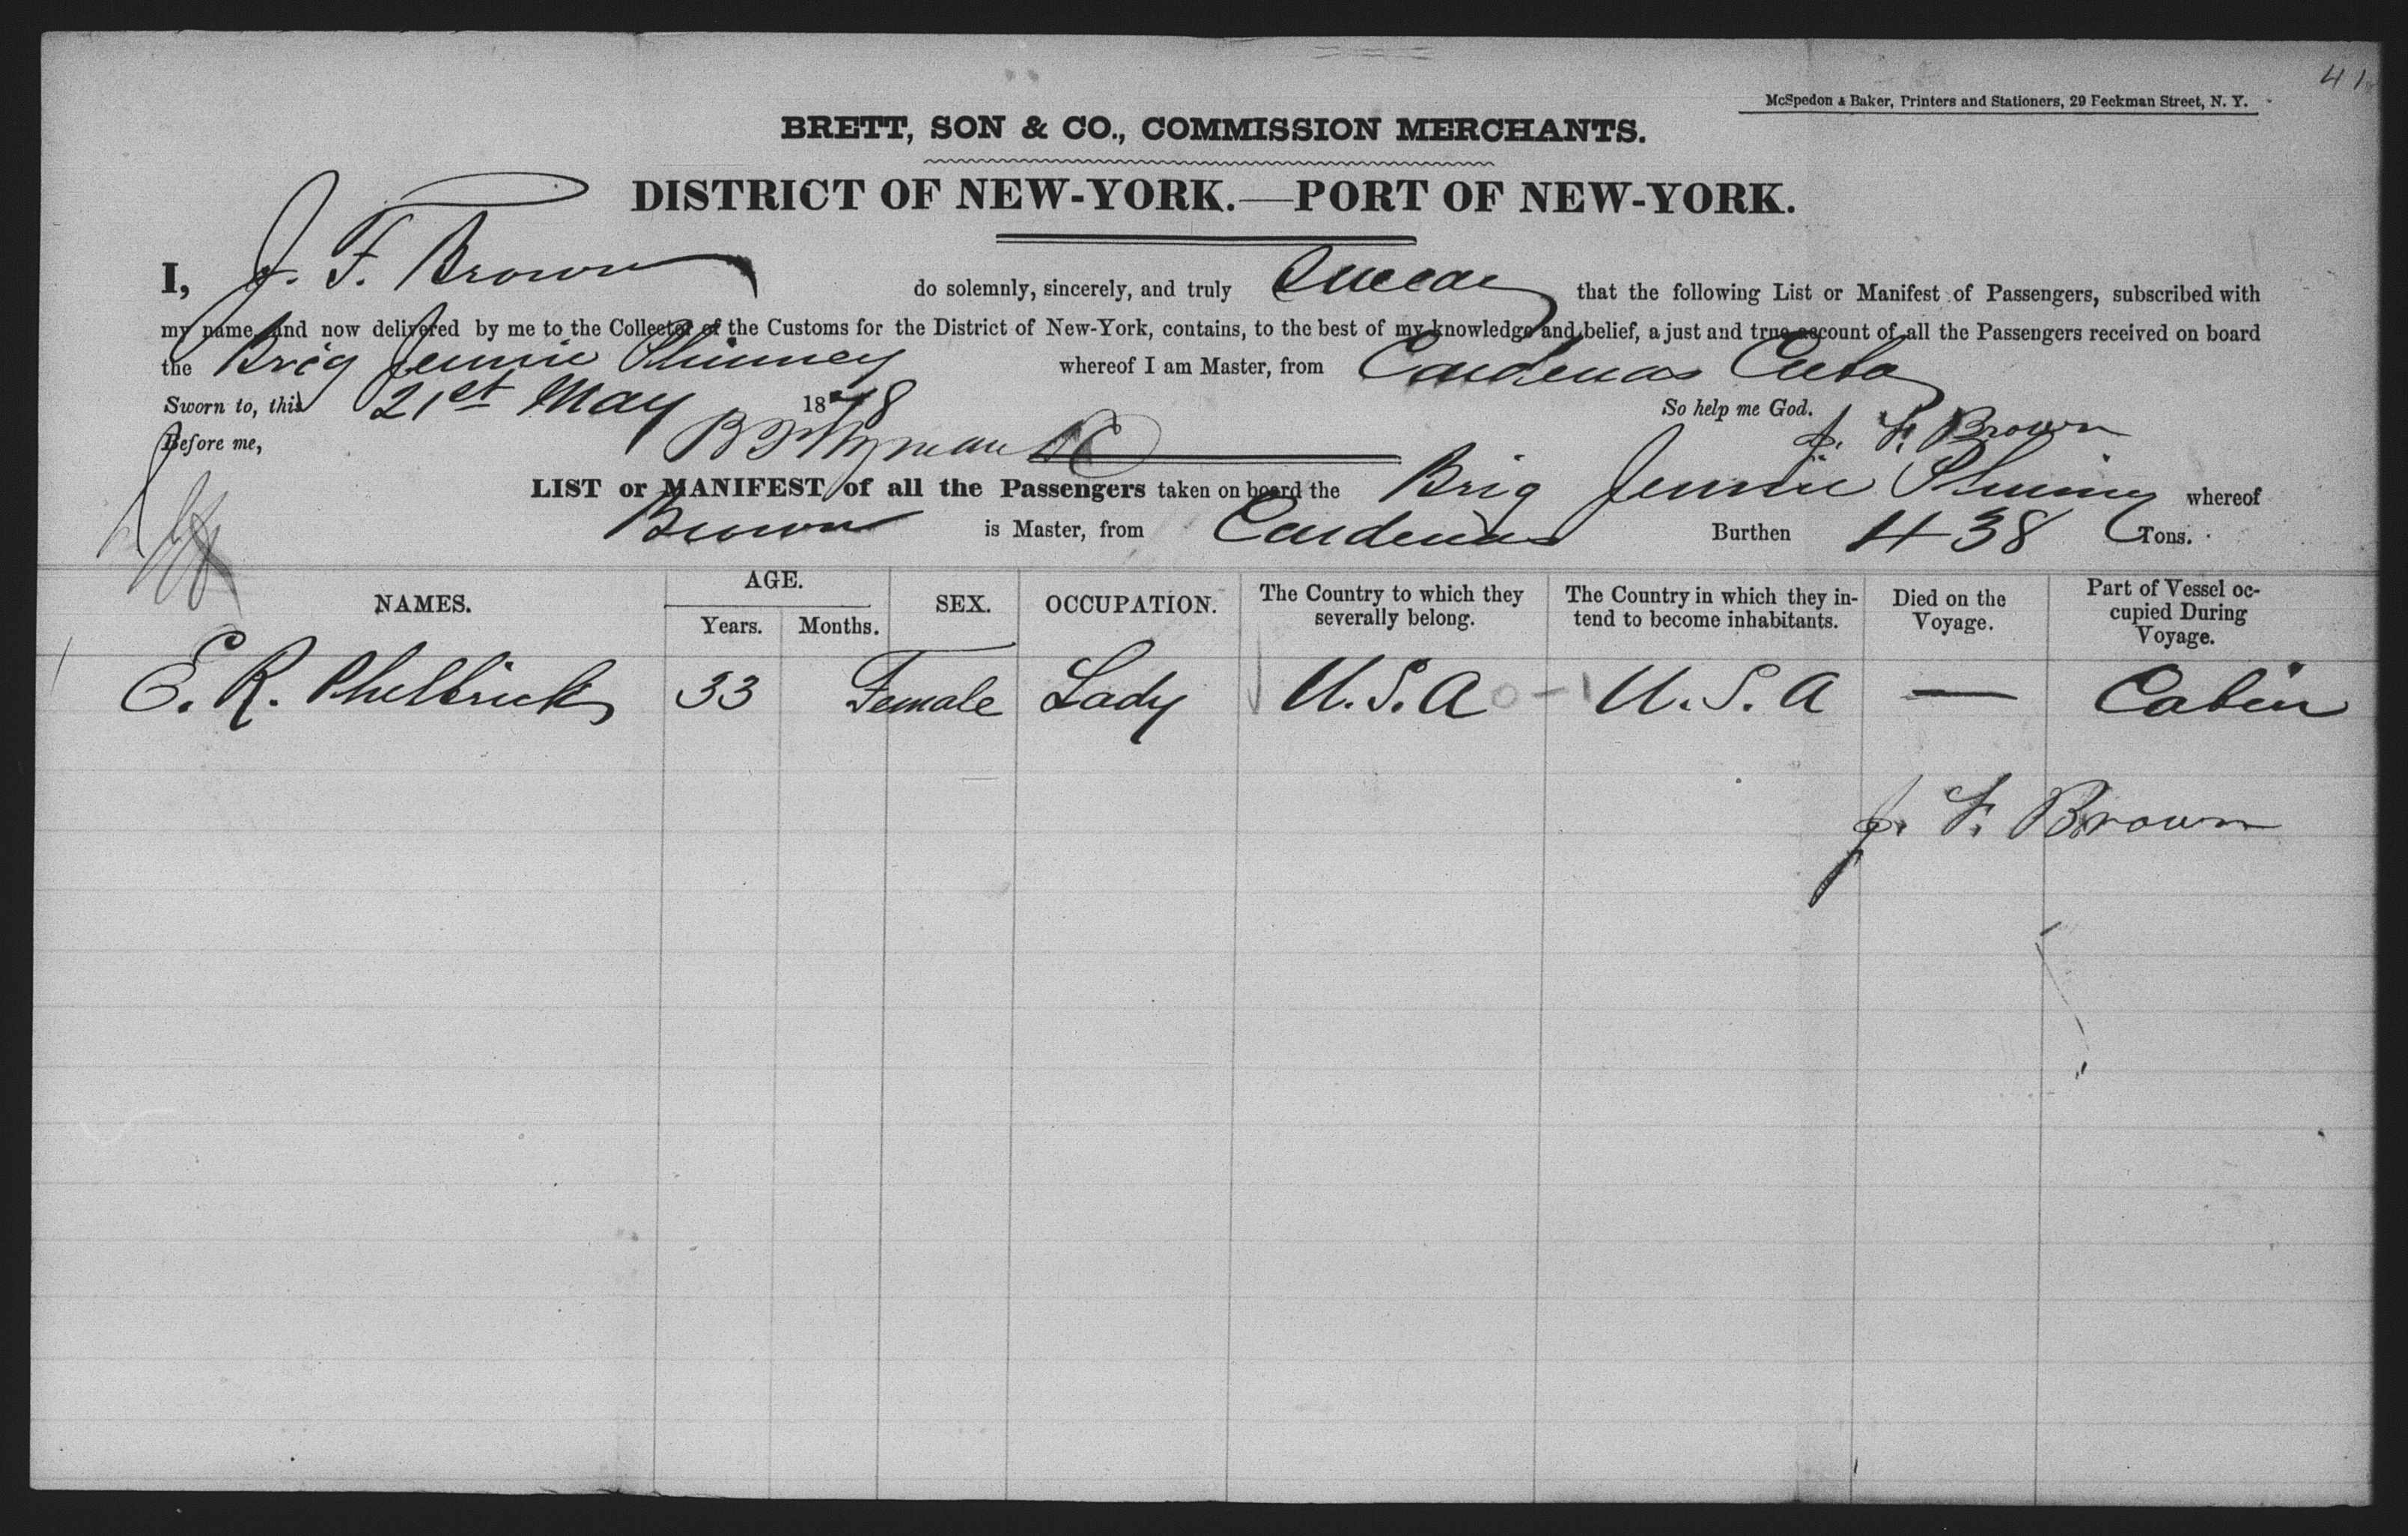 41
McSpedon & Baker, Printers and Stationers, 29 Feekman Street, N. Y.
BRETT, SON & CO., COMMISSION MERCHANTS.
DISTRICT OF NEW-YORK.—PORT OF NEW-YORK.
I, J. F. Brown do solemnly, sincerely, and truly Swear that the following List or Manifest of Passengers, subscribed with
my name and now delivered by me to the Collector of the Customs for the District of New-York, contains, to the best of my knowledge and belief, a just and true account of all the Passengers received on board
the Brig Jennie Phinney whereof I am Master, from Cardenas Cuba
Sworn to, this 21st May 1878 So help me God. J. F. Brown
Before me,
LIST or MANIFEST of all the Passengers taken on board the Brig Jennie Phinney whereof
Brown is Master, from Cardenas Burthen 438 Tons.
NAMES. AGE. Years. Months. SEX. OCCUPATION. The Country to which they severally belong. The Country in which they intend to become inhabitants. Died on the Voyage. Part of Vessel occupied During Voyage.
E. R. Philbrick 33 Female Lady U.S.A 0-1 U.S.A — Cabin
J. F. Brown